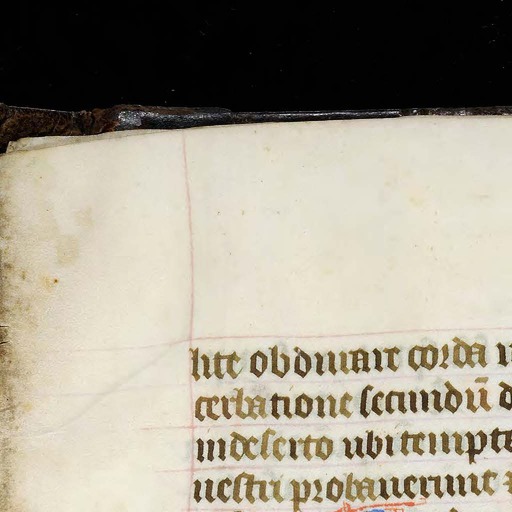 lite obdurare corda
cerbatione secundū d
indeserto ubi tempta
uestri probauerunt